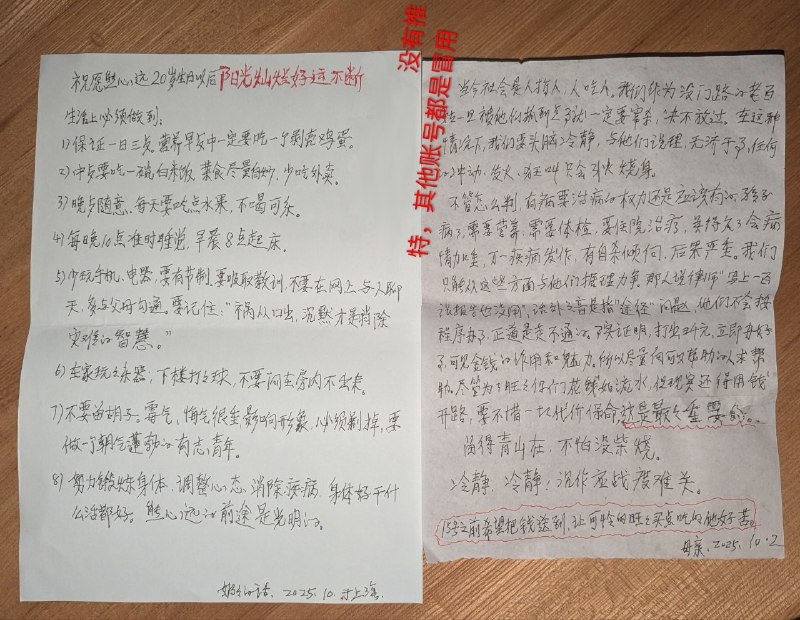 祝愿熊心远20岁生日以后阳光灿烂好运不断
生活上必须做到:
1)保证一日三歺,营养早歺中一定要吃一个剥壳鸡蛋。
2)中歺要吃一碗白米饭,菜食尽量自炒,少吃外卖。
3)晚歺随意,每天要吃点水果,不喝可乐。
4)每晚10点准时睡觉,早晨8点起床。
5)少玩手机、电器,要有节制,要吸取教训,不要在网上与人聊
天,多与父母沟通。要记住:"祸从口出,沉默才是消除
灾难的智慧。"
6)在家玩玩乐器,下楼打打球,不要闷在房内不出来。
7)不要留胡子。霉气、悔气很重影响形象,必须剃掉,要
做一个朝气蓬勃的有志青年。
8)努力锻炼身体,调整心态,消除疾病,身体好干什
么活都好。熊心远的前途是光明的。
2025.10.于上海
没有推
特,其他账号都是冒用
当今社会是人踩人,人吃人。我们作为没门路的老百
情况下,我们要头脑冷静,与他们说理,无济于事,任何
的冲动、发火、狂叫只会引火烧身。
不管怎么判,有病要治病的权力还是应该有的,孩子
病了,需要营养,需要体检,要住院治疗,
有自杀倾向,后果严重。我们
只能从这些方面与他们据理力争,那人说律师"写上一百
份报告也没用",话外之音是指"途径"问题,他们不会按
程序办事,正道是走不通的。
了,可见金钱的作用和魅力。所以尽量向可以帮助的人求帮
开路,要不惜一切代价保命,这是最最重要的。
留得青山在,不怕没柴烧。
冷静,冷静!沉作应战度难关。
15号之前希望把钱送到,让可怜的旺旺买点吃的他好苦。
母亲.2025.10.2